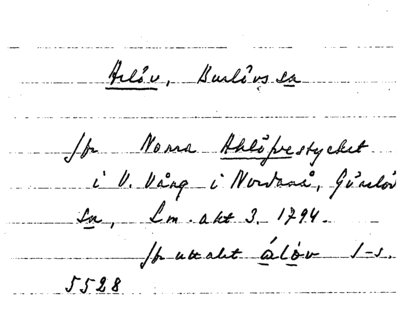 Arlöv, Burlövs sn
Jfr Norra Ahlöfvestycket
i V. Vång i Nordanå, Görslöv
sn, Lm. akt 3. 1794.
Jfr uttalet álöv 1-s.
5528